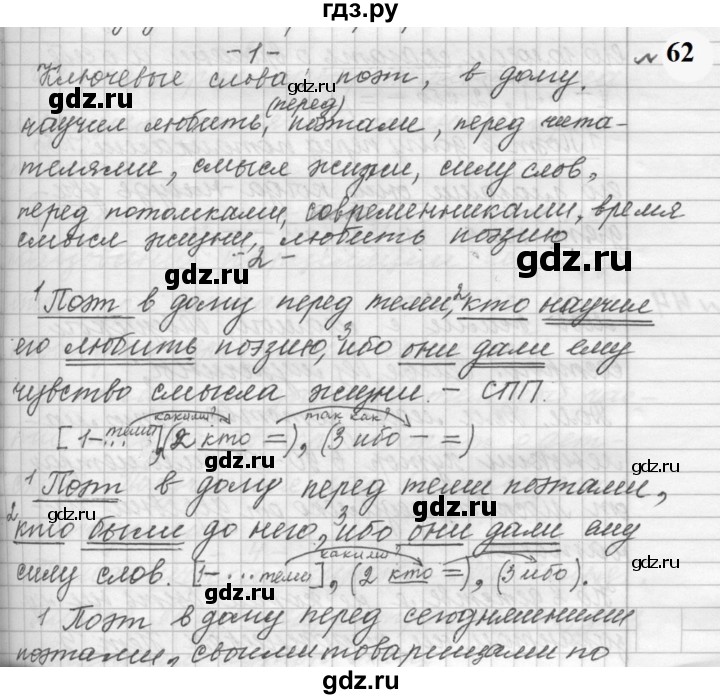 гдз.ру
- 1 -
№ 62
Ключевые слова: поэт, в долгу,
(перед)
научил любить, поэтами, перед чита-
телями, смысл жизни, силу слов,
перед потомками, современниками, время
смысл жизни, любить поэзию
- 2 -
1 Поэт в долгу перед теми, 2 кто научил
его любить поэзию, 3 ибо они дали ему
чувство смысла жизни. – СПП.
какими? так как?
[1-... теми], (2 кто =), (3 ибо - =)
1 Поэт в долгу перед теми поэтами,
2 кто были до него, 3 ибо они дали ему
какими?
силу слов. [1-... теми], (2 кто =), (3 ибо).
1 Поэт в долгу перед сегодняшними
поэтами, своими товарищами по
gdz.ru
gdz.ru
gdz.ru
gdz.ru
gdz.ru
gdz.ru
gdz.ru
gdz.ru
gdz.ru
gdz.ru